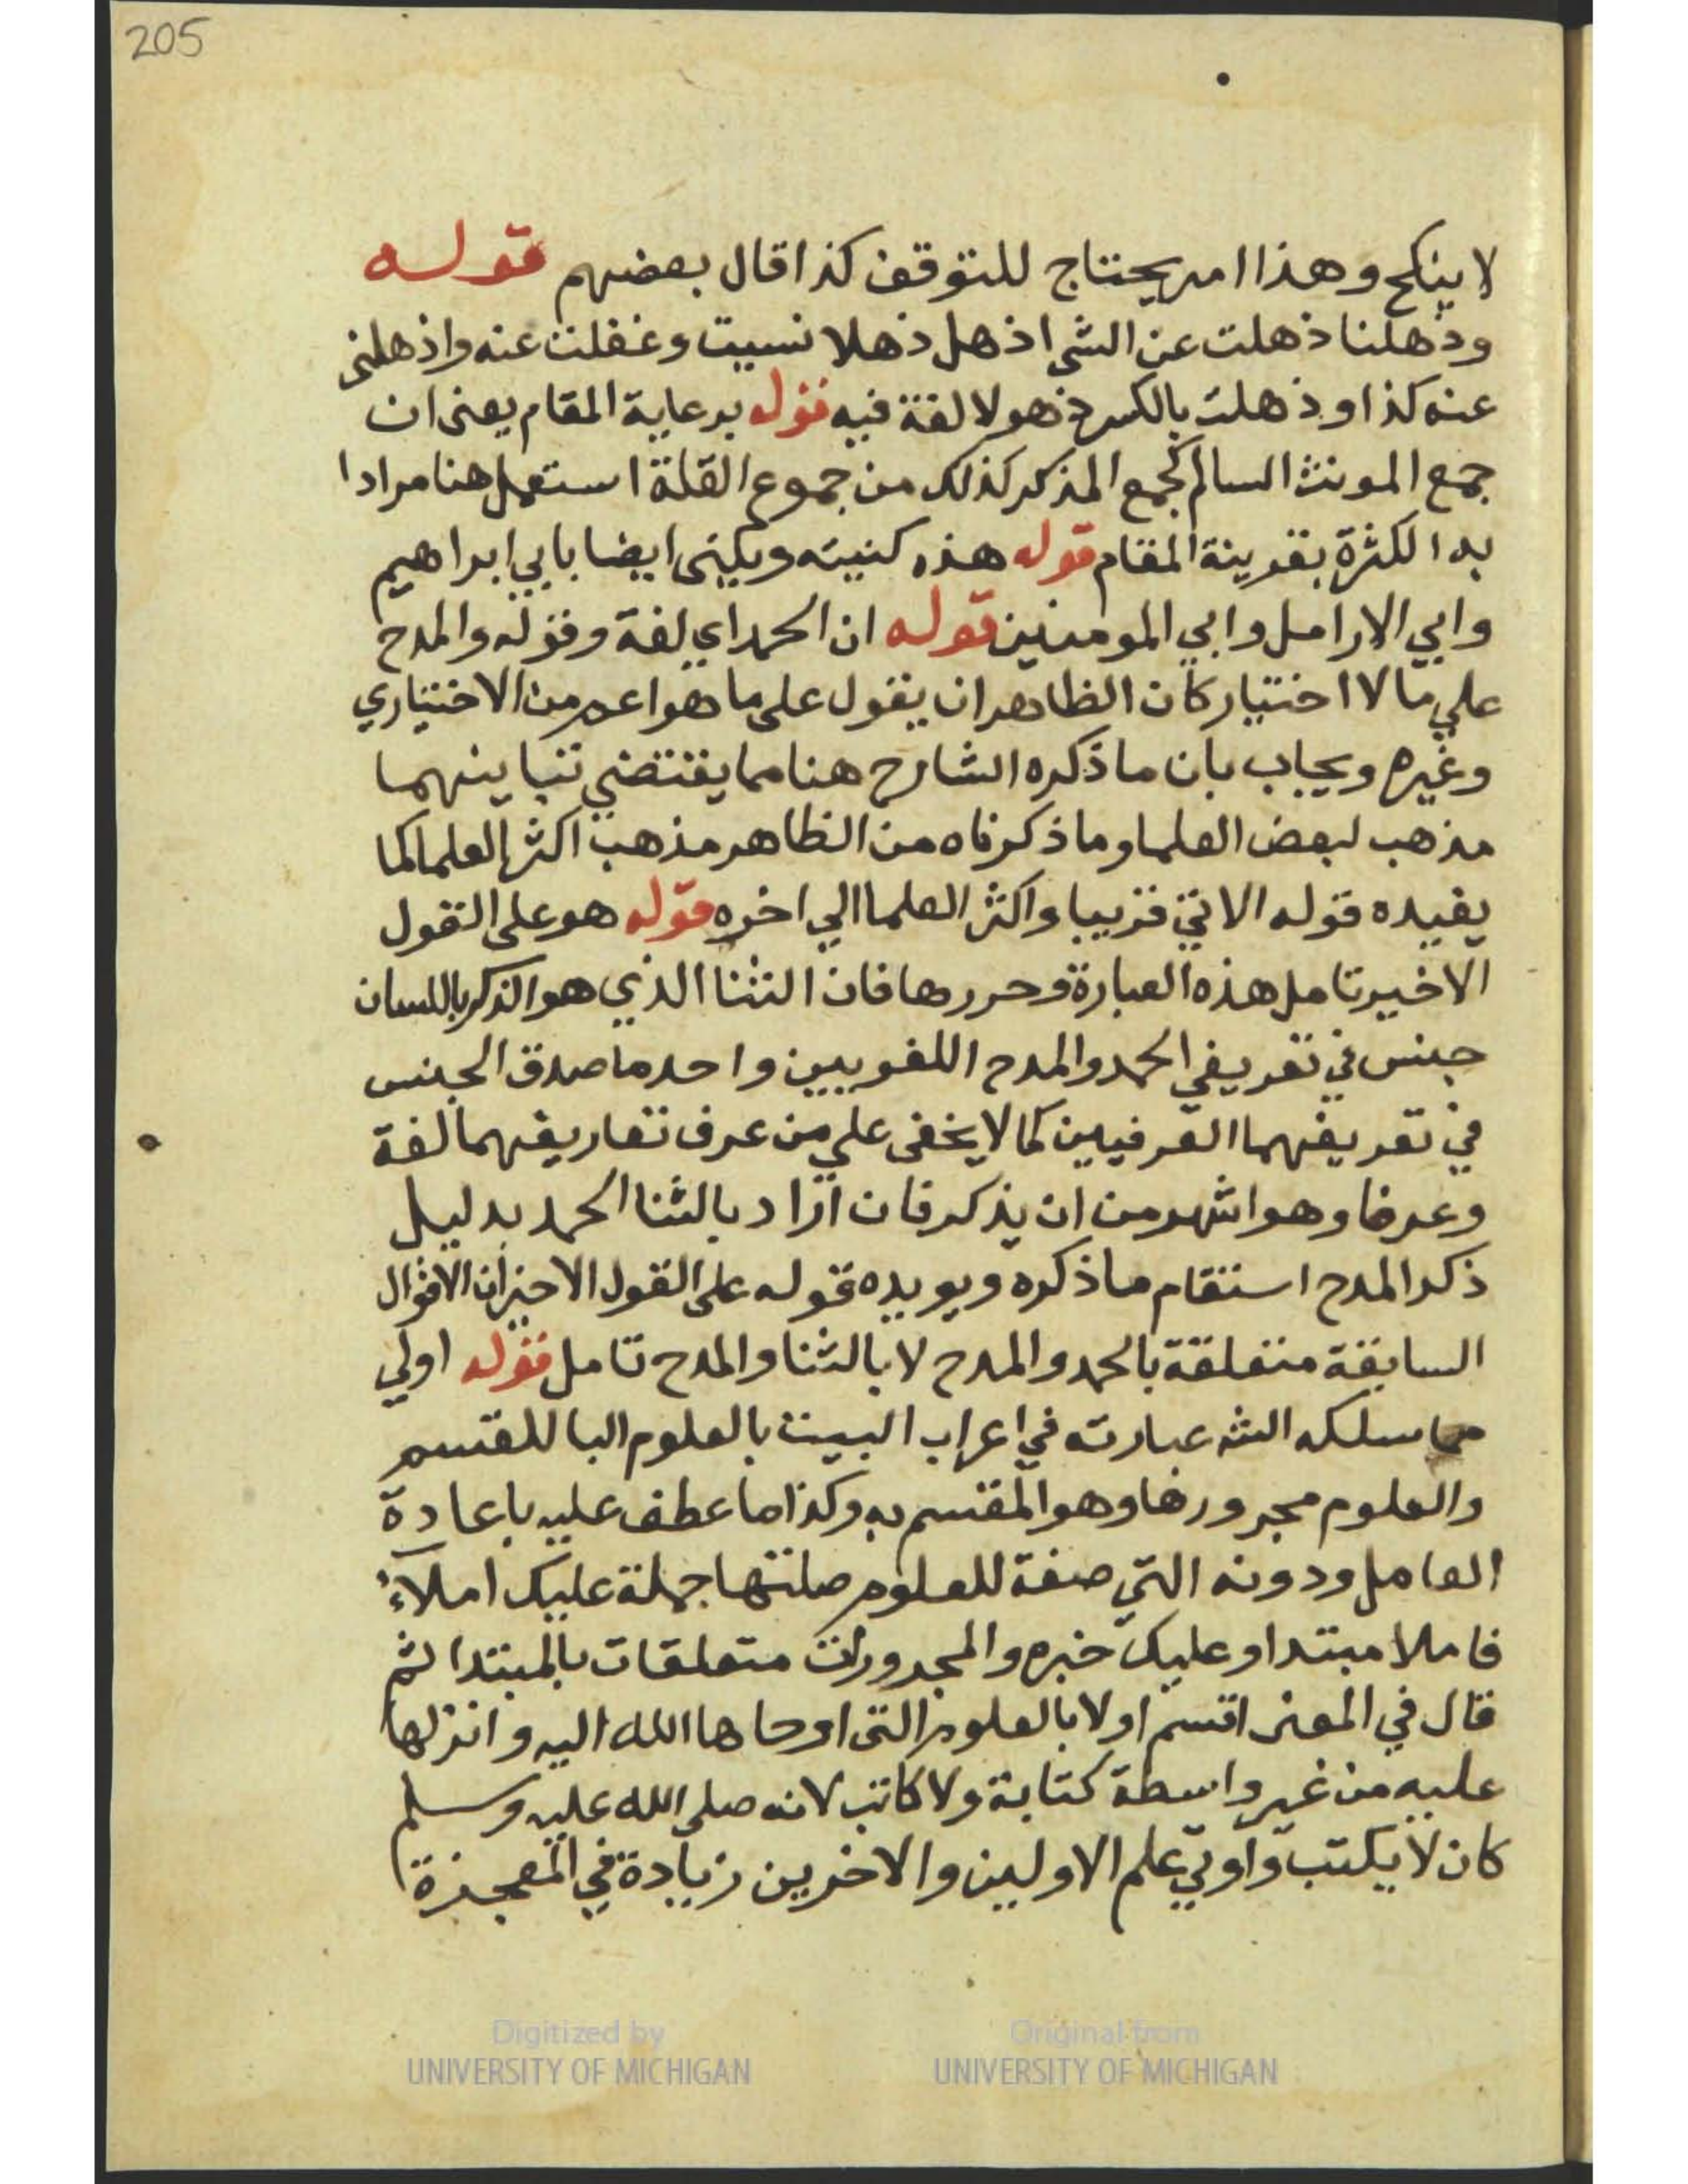 205
لا ينكح وهذا امر يحتاج للتوقف كذا قال بعضهم قوله
وذهلنا ذهلت عن الشي اذهل ذهلا نسيت وغفلت عنه واذهلنى
عنه كذا وذهلت بالكسر ذهولا لغة فيه قوله برعاية المقام يعنى ان
جمع المونث السالم كجمع المذكر كذلك من جموع القلة استعمل هنا مرادا
به الكثرة بقرينة المقام قوله هذه كنيته ويكنى ايضا بابي ابراهيم
وابي الارامل وابي المومنين قوله ان الحمد اي لغة وقوله والمدح
علي ما لا اختيار كان الظاهر ان يقول على ما هو اعم من الاختياري
وغيره ويجاب بان ما ذكره الشارح هنا مما يقتضي تباينهما
مذهب لبعض العلما وما ذكرناه من الظاهر مذهب اكثر العلما كما
يفيده قوله الاتي قريبا واكثر العلما الي اخره قوله هو على القول
الاخير تامل هذه العبارة وحررها فان الثنا الذي هو الذكر باللسان
جنس في تعريفي الحمد والمدح اللغويين واحد ما صدق الجنس
في تعريفهما العرفيين كما لا يخفى علي من عرف تعاريفهما لغة
وعرفا وهو اشهر من ان يذكر فان اراد بالثنا الحمد بدليل
ذكر المدح استقام ما ذكره ويويده قوله على القول الاخير ان الاقوال
السابقة متعلقة بالحمد والمدح لا بالثنا والمدح تامل قوله اولي
مما سلكه الشه عبارته في اعراب البيت بالعلوم البا للقسم
والعلوم مجرورها وهو المقسم به وكذا ما عطف عليه باعادة
العامل ودونه التي صفة للعلوم صلتها جملة عليك املاء
فاملا مبتدا وعليك خبره والمجرورات متعلقات بالمبتدا ثم
قال في المعنى اقسم اولا بالعلوم التى اوحاها الله اليه وانزلها
عليه من غير واسطة كتابة ولا كاتب لانه صلى الله عليه وسلم
كان لا يكتب واوتي علم الاولين والاخرين زيادة في المعجزة
Digitized by
UNIVERSITY OF MICHIGAN
Original from
UNIVERSITY OF MICHIGAN